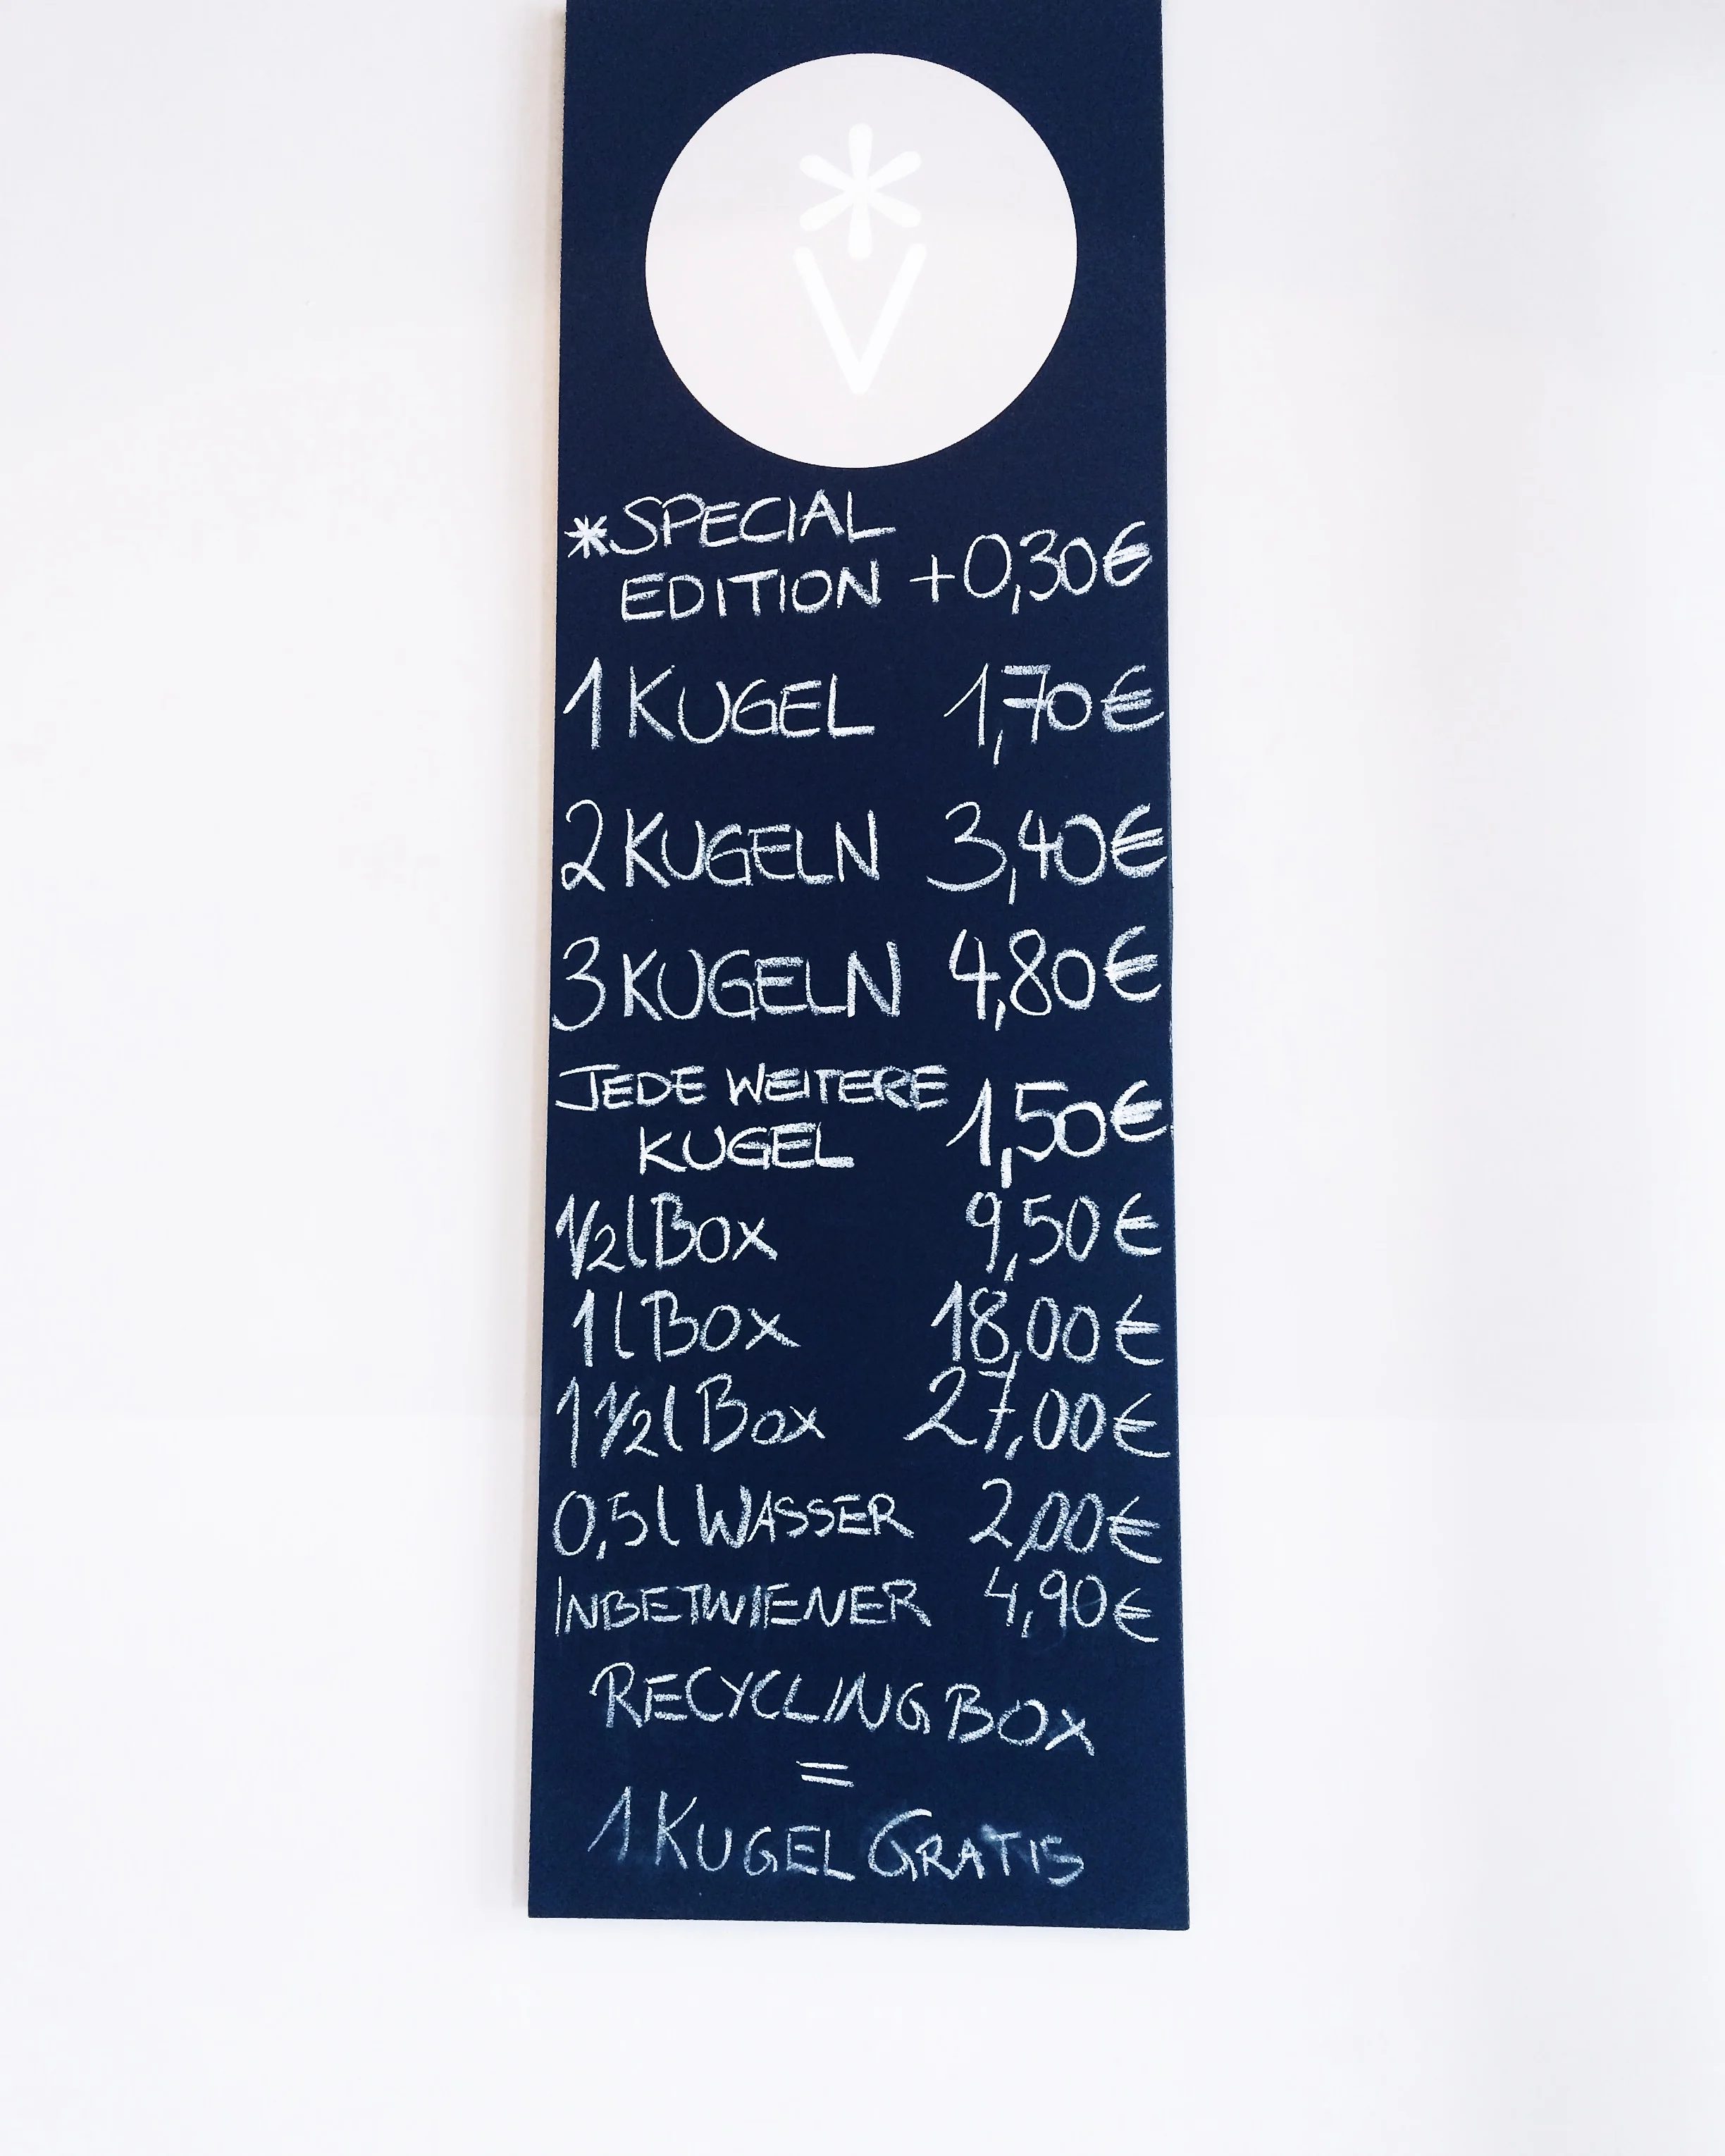 *SPECIAL
EDITION +0,30€
1 KUGEL 1,70€
2 KUGELN 3,40€
3 KUGELN 4,80€
JEDE WEITERE
KUGEL 1,50€
1/2l BOX 9,50€
1l BOX 18,00€
1 1/2l BOX 27,00€
0,5l WASSER 2,00€
INBETWIENER 4,90€
RECYCLING BOX
=
1 KUGEL GRATIS